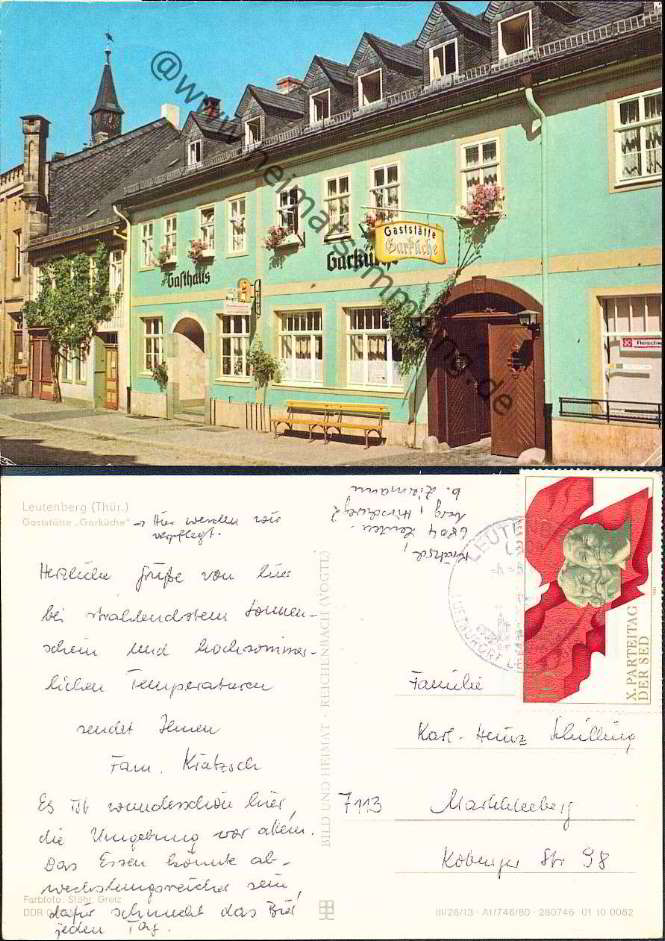 @www.heimatsammlung.de
Gasthaus
Garküche
Gaststätte
Garküche
Fleischw
Leutenberg (Thür.)
Gaststätte „Garküche“
→ Hier werden wir
verpflegt.
Kratzsch
6804 Leuten-
berg, Hirschweg 2
b.
LEUT
X. PARTEITAG
DER SED
Herzliche Grüße von hier
bei strahlendstem Sonnen-
schein und hochsommer-
lichen Temperaturen
sendet Ihnen
Fam. Kratzsch
Es ist wunderschön hier,
die Umgebung vor allem.
Das Essen könnte ab-
wechslungsreicher sein,
dafür schmeckt das Bier
jeden Tag.
BILD UND HEIMAT · REICHENBACH (VOGTL)
Familie
Karl-Heinz Schilling
7113 Markkleeberg
Koburger Str 98
Farbfoto: Stöhr, Greiz
DDR
III/26/13 · A1/746/80 · 280746 01 10 0082